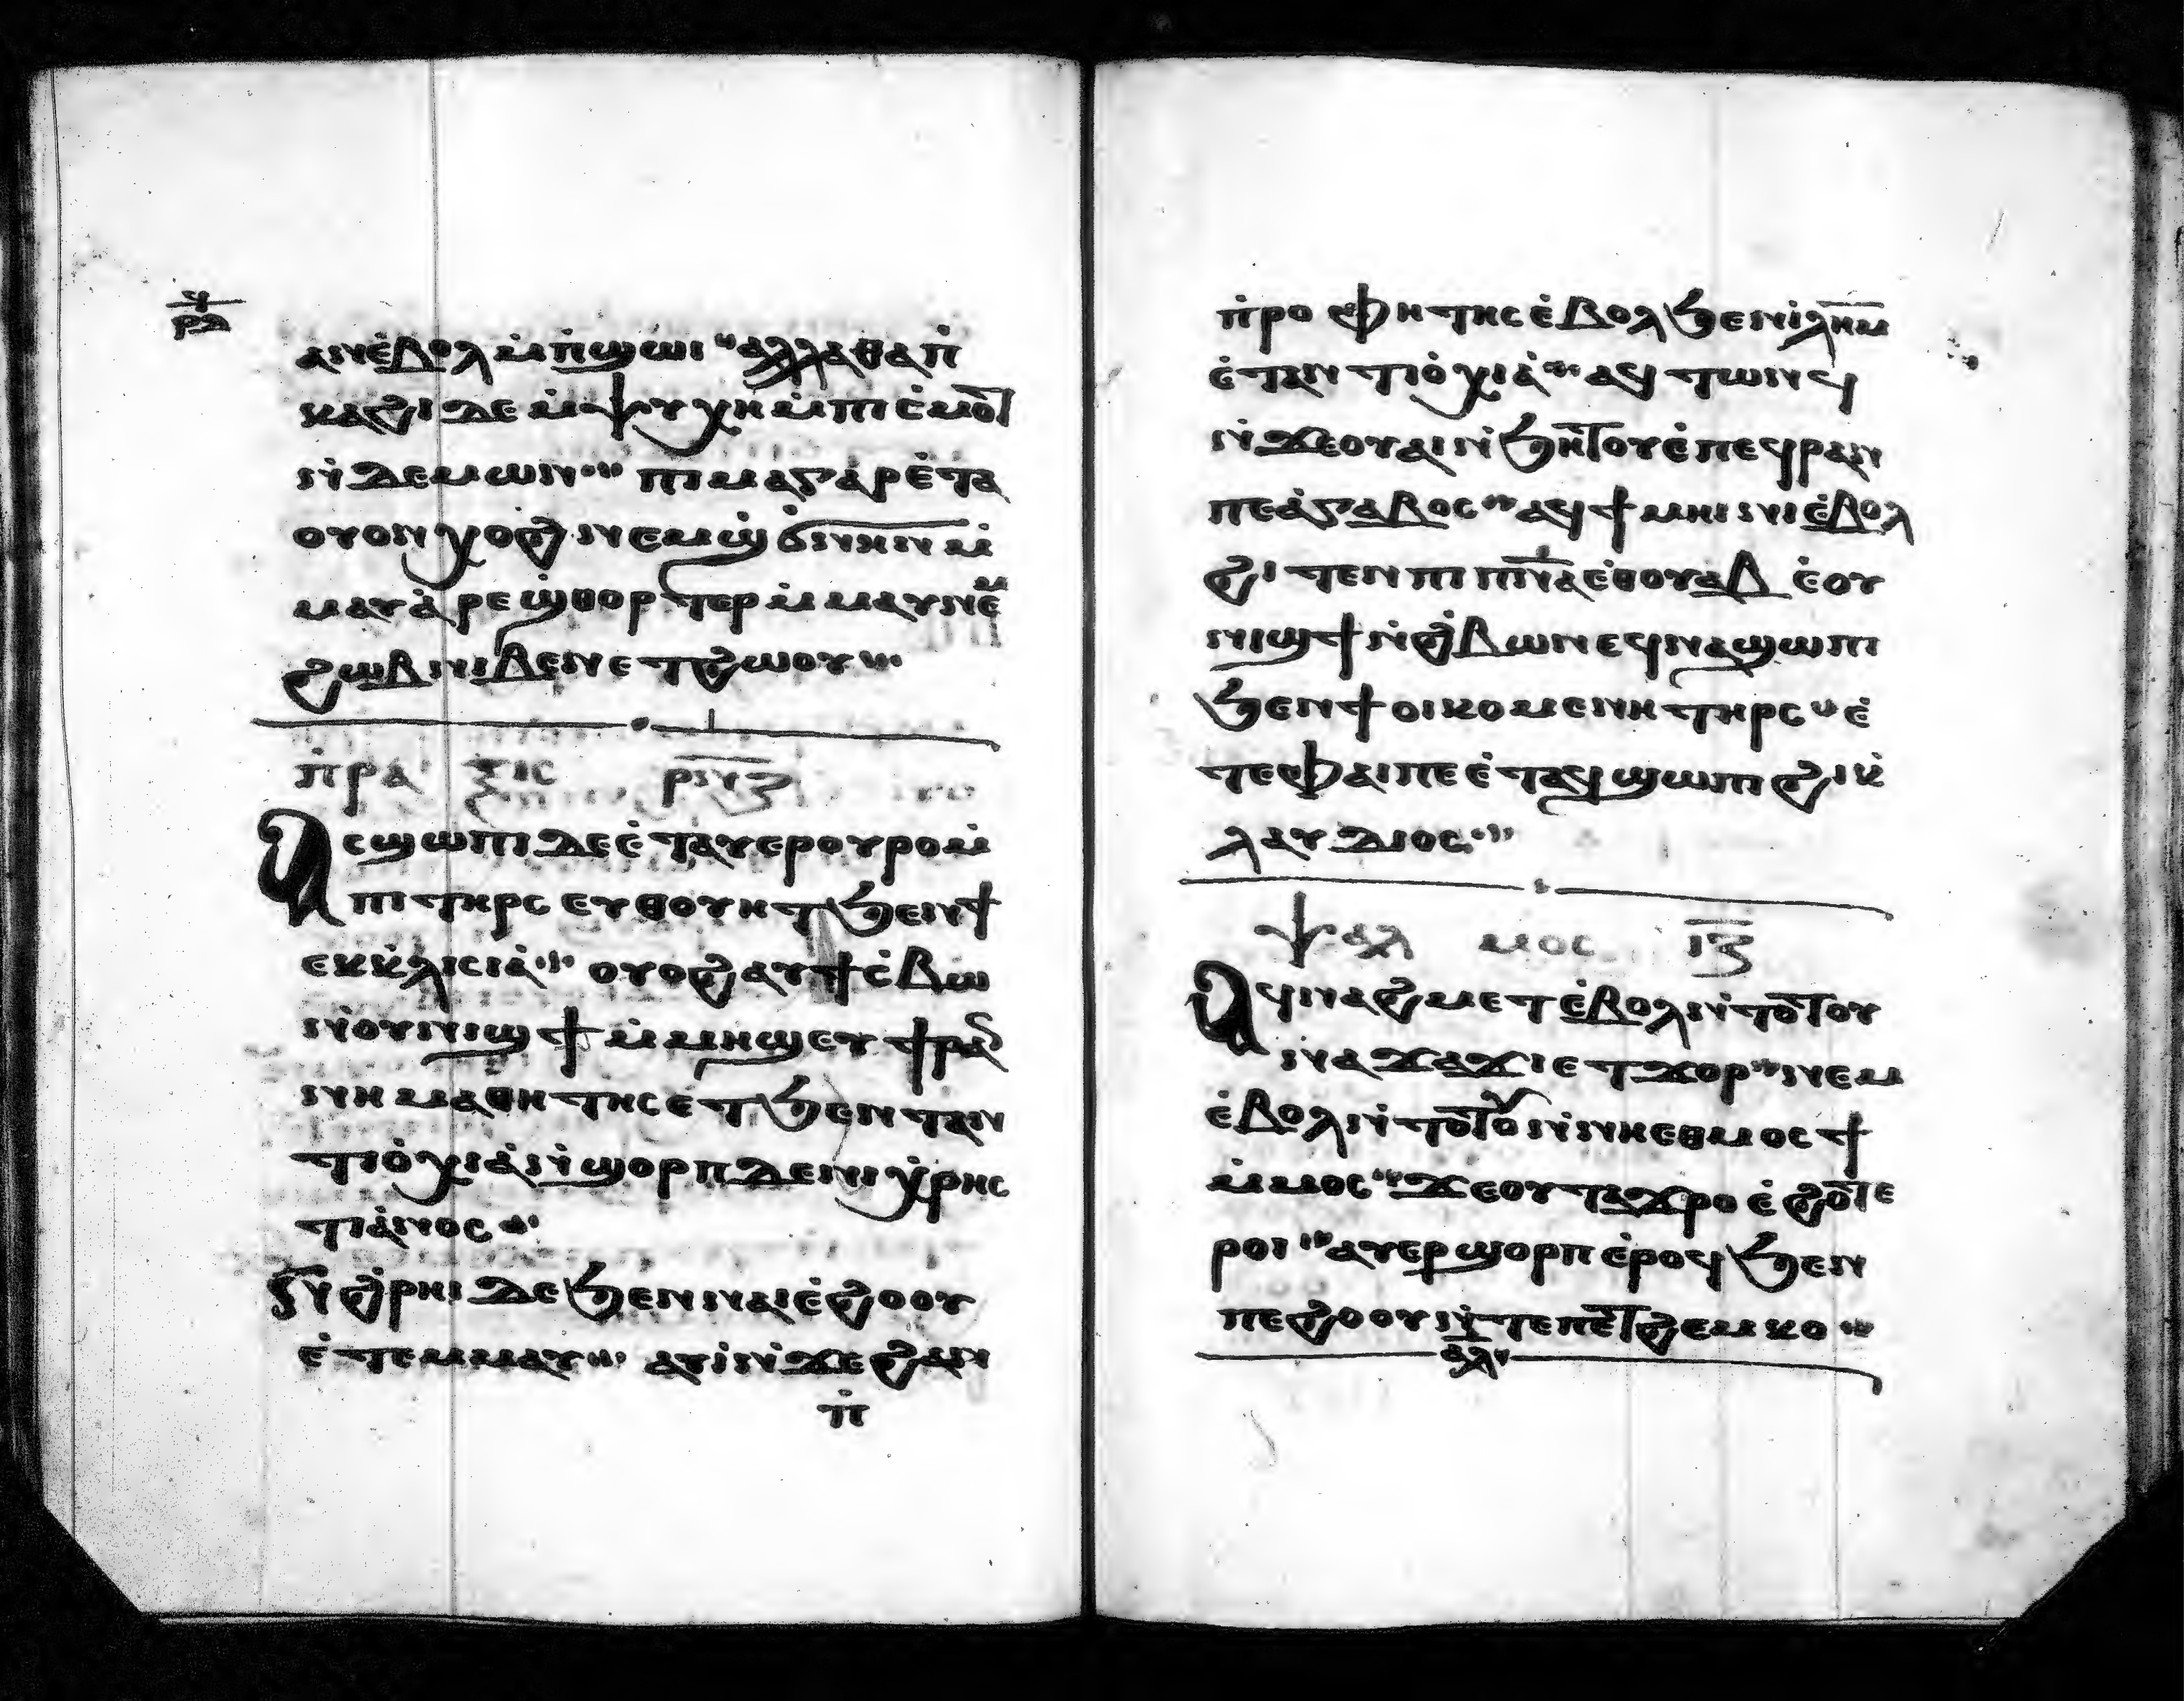 ϥ
ⲣⲗ
ⲁⲛⲉ̀ⲃⲟⲗ ⲙ̀ⲡ̀ϣⲱⲓ ⲁⲗⲗⲁ ⲑⲁⲡ̀
ⲕⲁϩⲓ ⲇⲉ ⲙ̀ⲯⲩⲭⲏ ⲙ̀ⲡⲓⲥ̀ⲙⲟ̅ⲧ
ⲛ̀ⲇⲉⲙⲱⲛ ⲡⲓⲙⲁ ⲅⲁⲣ ⲉ̀ⲧⲁ
ⲟⲩⲟⲛ ⲭⲟϩ ⲛⲉⲙ ϣ̀ϭⲛⲏⲛ ⲙ̀
ⲙⲁⲩ ⲁ̀ⲣⲉ ϣ̀ⲑⲟⲣⲧⲉⲣ ⲙ̀ⲙⲁⲩ ⲛⲉⲙ
ϩⲱⲃ ⲛⲓⲃⲉⲛ ⲉⲧϩⲱⲟⲩ
ⲡ̀ⲣⲁⲝⲓⲥ ⲣⲛⲍ
Ⲁⲥϣⲱⲡⲓ ⲇⲉ ⲉ̀ⲧⲁⲩⲉⲣ ⲟⲩⲣⲟⲙ̀
ⲡⲓ ⲧⲏⲣⲥ ⲉⲩⲑⲟⲩⲏⲧ ϧⲉⲛ ϯ
ⲉⲕⲕ̀ⲗⲓⲥⲓⲁ̀ ⲟⲩⲟϩ ⲁⲩϯⲥ̀ⲃⲱ
ⲛ̀ⲟⲩⲛⲓϣϯ ⲙ̀ⲙⲏϣ ⲉⲩϯⲣⲁⲛ
ⲛⲏ ⲙⲁⲑⲏⲧⲏⲥ ⲉⲧϧⲉⲛ ⲧⲁⲛ
ⲧⲓⲟ̀ⲭⲓⲁ̀ ⲛ̀ϣⲟⲣⲡ ⲇⲉ ⲛⲓⲭ̀ⲣⲏⲥ
ⲧⲓⲁ̀ⲛⲟⲥ
ⲛ̀ϩ̀ⲣⲏⲓ ⲇⲉ ϧⲉⲛ ⲛⲁⲓⲉ̀ϩⲟⲟⲩ
ⲉ̀ⲧⲉⲙⲙⲁⲩ ⲁⲩⲓ̀ ⲛ̀ϫⲉ ϩⲁⲛ
ⲡ̀
ⲡ̀ⲣⲟⲫⲏⲧⲏⲥ ⲉ̀ⲃⲟⲗ ϧⲉⲛ ⲓ̀ⲗ̅ⲏ̅ⲙ̅
ⲉ̀ⲧⲁⲛⲧⲓⲟ̀ⲭⲓⲁ̀ ⲁϥⲧⲱⲛϥ
ⲛ̀ϫⲉ ⲟⲩⲁⲓ ⲛ̀ϧⲏ̅ⲧⲟⲩ ⲉ̀ⲡⲉϥⲣⲁⲛ
ⲡⲉ ⲁ̀ⲅⲁⲃⲟⲥ ⲁϥϯⲙⲏⲓⲛⲓ ⲉ̀ⲃⲟⲗ
ϩⲓⲧⲉⲛ ⲡⲓⲡ̅ⲛ̅ⲁ̅ ⲉ̀ⲑⲟⲩⲁⲃ ⲉ̀ⲟⲩ
ⲛⲓϣϯ ⲛ̀ϩ̀ⲃⲱⲛ ⲉϥⲛⲁϣⲱⲡⲓ
ϧⲉⲛ ϯⲟⲓⲕⲟⲙⲉⲛⲏ ⲧⲏⲣⲥ ⲉ̀
ⲧⲉ ⲫⲁⲓ ⲡⲉ ⲉ̀ⲧⲁϥϣⲱⲡⲓ ϩⲓ ⲕ̀
ⲗⲁⲩⲇⲓⲟⲥ
ⲯⲁⲗⲙⲟⲥ ⲓ̅ⲍ̅
Ⲁϥⲛⲁϩⲙⲉⲧ ⲉ̀ⲃⲟⲗ ⲛ̀ⲧⲟ̅ⲧⲟⲩ
ⲛⲁϫⲁϫⲓ ⲉⲧϫⲟⲣ ⲛⲉⲙ
ⲉ̀ⲃⲟⲗ ⲛ̀ⲧⲟ̅ⲧⲟⲩ ⲛ̀ⲛⲏ ⲉⲑⲙⲟⲥϯ
ⲙ̀ⲙⲟⲥ ϫⲉ ⲟⲩⲧⲁϫⲣⲟ ⲉ̀ϩⲟ̅ⲧⲉ
ⲣⲟⲓ ⲁⲩⲉⲣϣⲟⲣⲡ ⲉ̀ⲣⲟϥ ϧⲉⲛ
ⲡⲉϩⲟⲟⲩ ⲛ̀ⲧⲉ ⲡⲉ̅ⲧϩⲉⲙⲕⲟ
ⲁⲗ